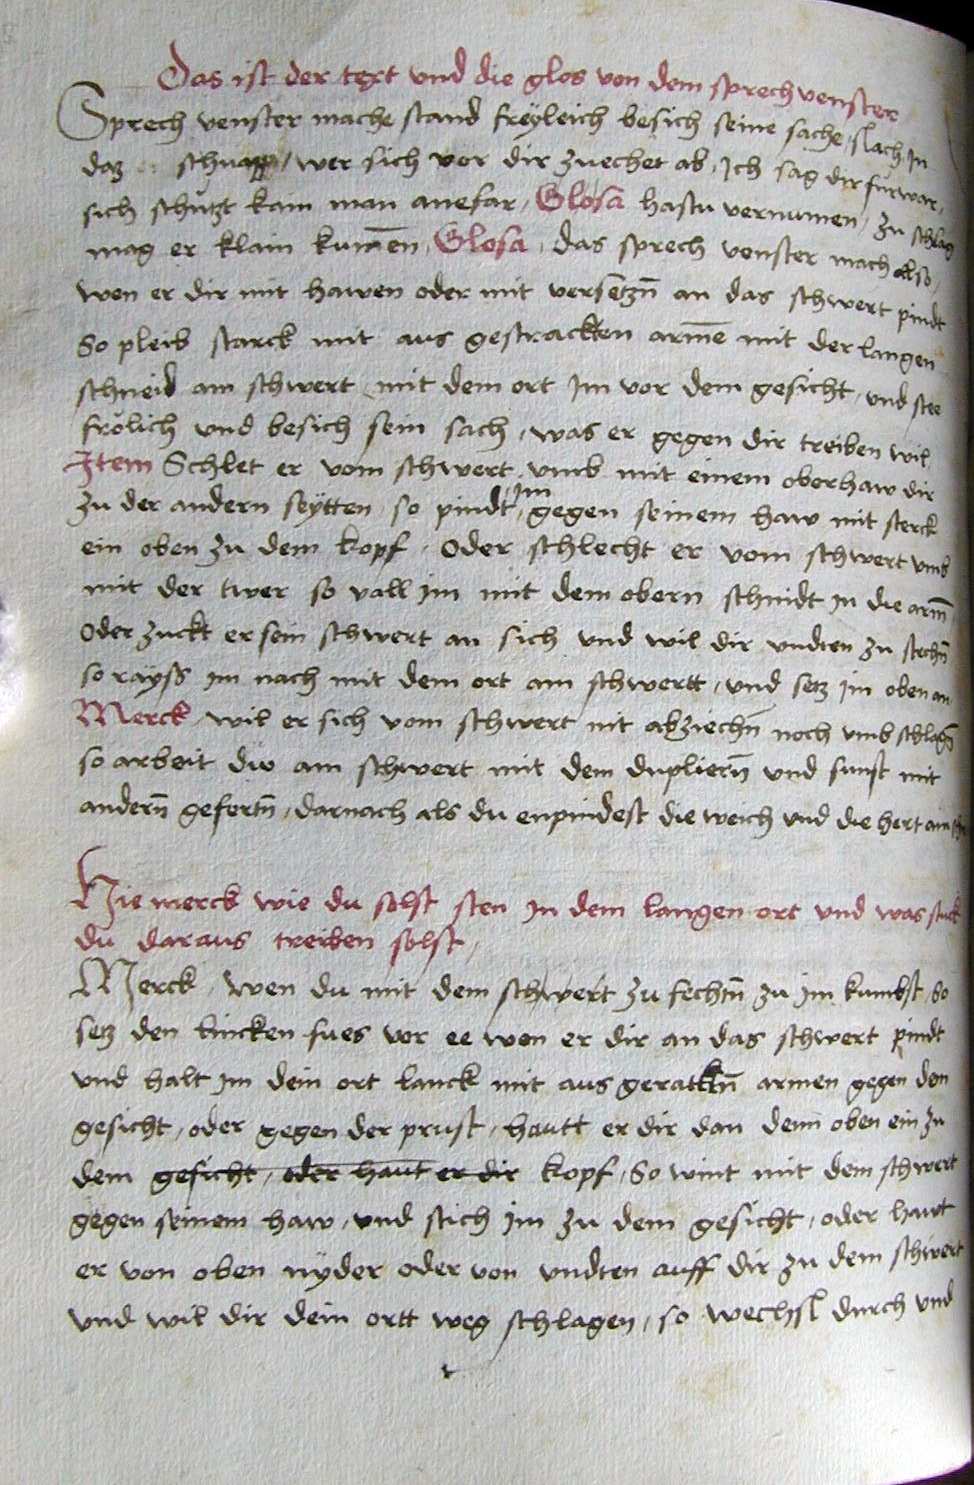 Das ist der text vnd die glos von dem sprechvenster
Sprech venster mache stand freyleich besich seine sache slach In
daz schnapp / wer sich vor dir zuechet ab, Ich sag dir furwar,
sich schützt kain man anefar, Glosa hastu vernumen, zu schlag
mag er klain kumēn, Glosa, das sprech venster mach also,
wen er dir mit hawen oder mit versetzn̄ an das schwert pindt
So pleib starck mit aus gestrackten armē mit der langen
schneid am schwert mit dem ort Im vor dem gesicht, vnd stee
frölich vnd besich sein sach, was er gegen dir treiben wil
Item Schlet er vom schwert vmb mit einem oberhaw dir
zu der andern seÿtten so pindt Im gegen seinem haw mit sterck
ein oben zu dem kopf, Oder schlecht er vom schwert vmb
mit der twer so vall im mit dem obern schnidt in die arm̄,
Oder zuckt er sein schwert an sich vnd wil dir vndten zu stechn̄
so raÿss im nach mit dem ort am schwertt, vnd setz im oben an
Merck wil er sich vom schwert nit abziechn̄ noch vmb schlagn̄
so arbeit dw am schwert mit dem dupliern̄ vnd sunst mit
andern̄ gefertn̄, darnach als du enpindest die weich vnd die hert am
Hie merck wie du solst sten In dem langen ort vnd was stuck
du daraus treiben solst,
Merck, wen du mit dem schwert zu fechtn̄ zu im kumbst, so
setz den lincken fues vor ee wen er dir an das schwert pindt
vnd halt im dein ort lanck mit aus gerackten̄ armen gegen dem
gesicht, oder gegen der prust, hautt er dir dan denn oben ein zu
dem gesicht, oder haut er dir kopf, So wint mit dem schwert
gegen seinem haw, vnd stich im zu dem gesicht, oder hawt
er von oben nÿder oder von vndten auff dir zu dem schwert
vnd wil dir dein ortt weg schlagen, so wechsl durch vnd